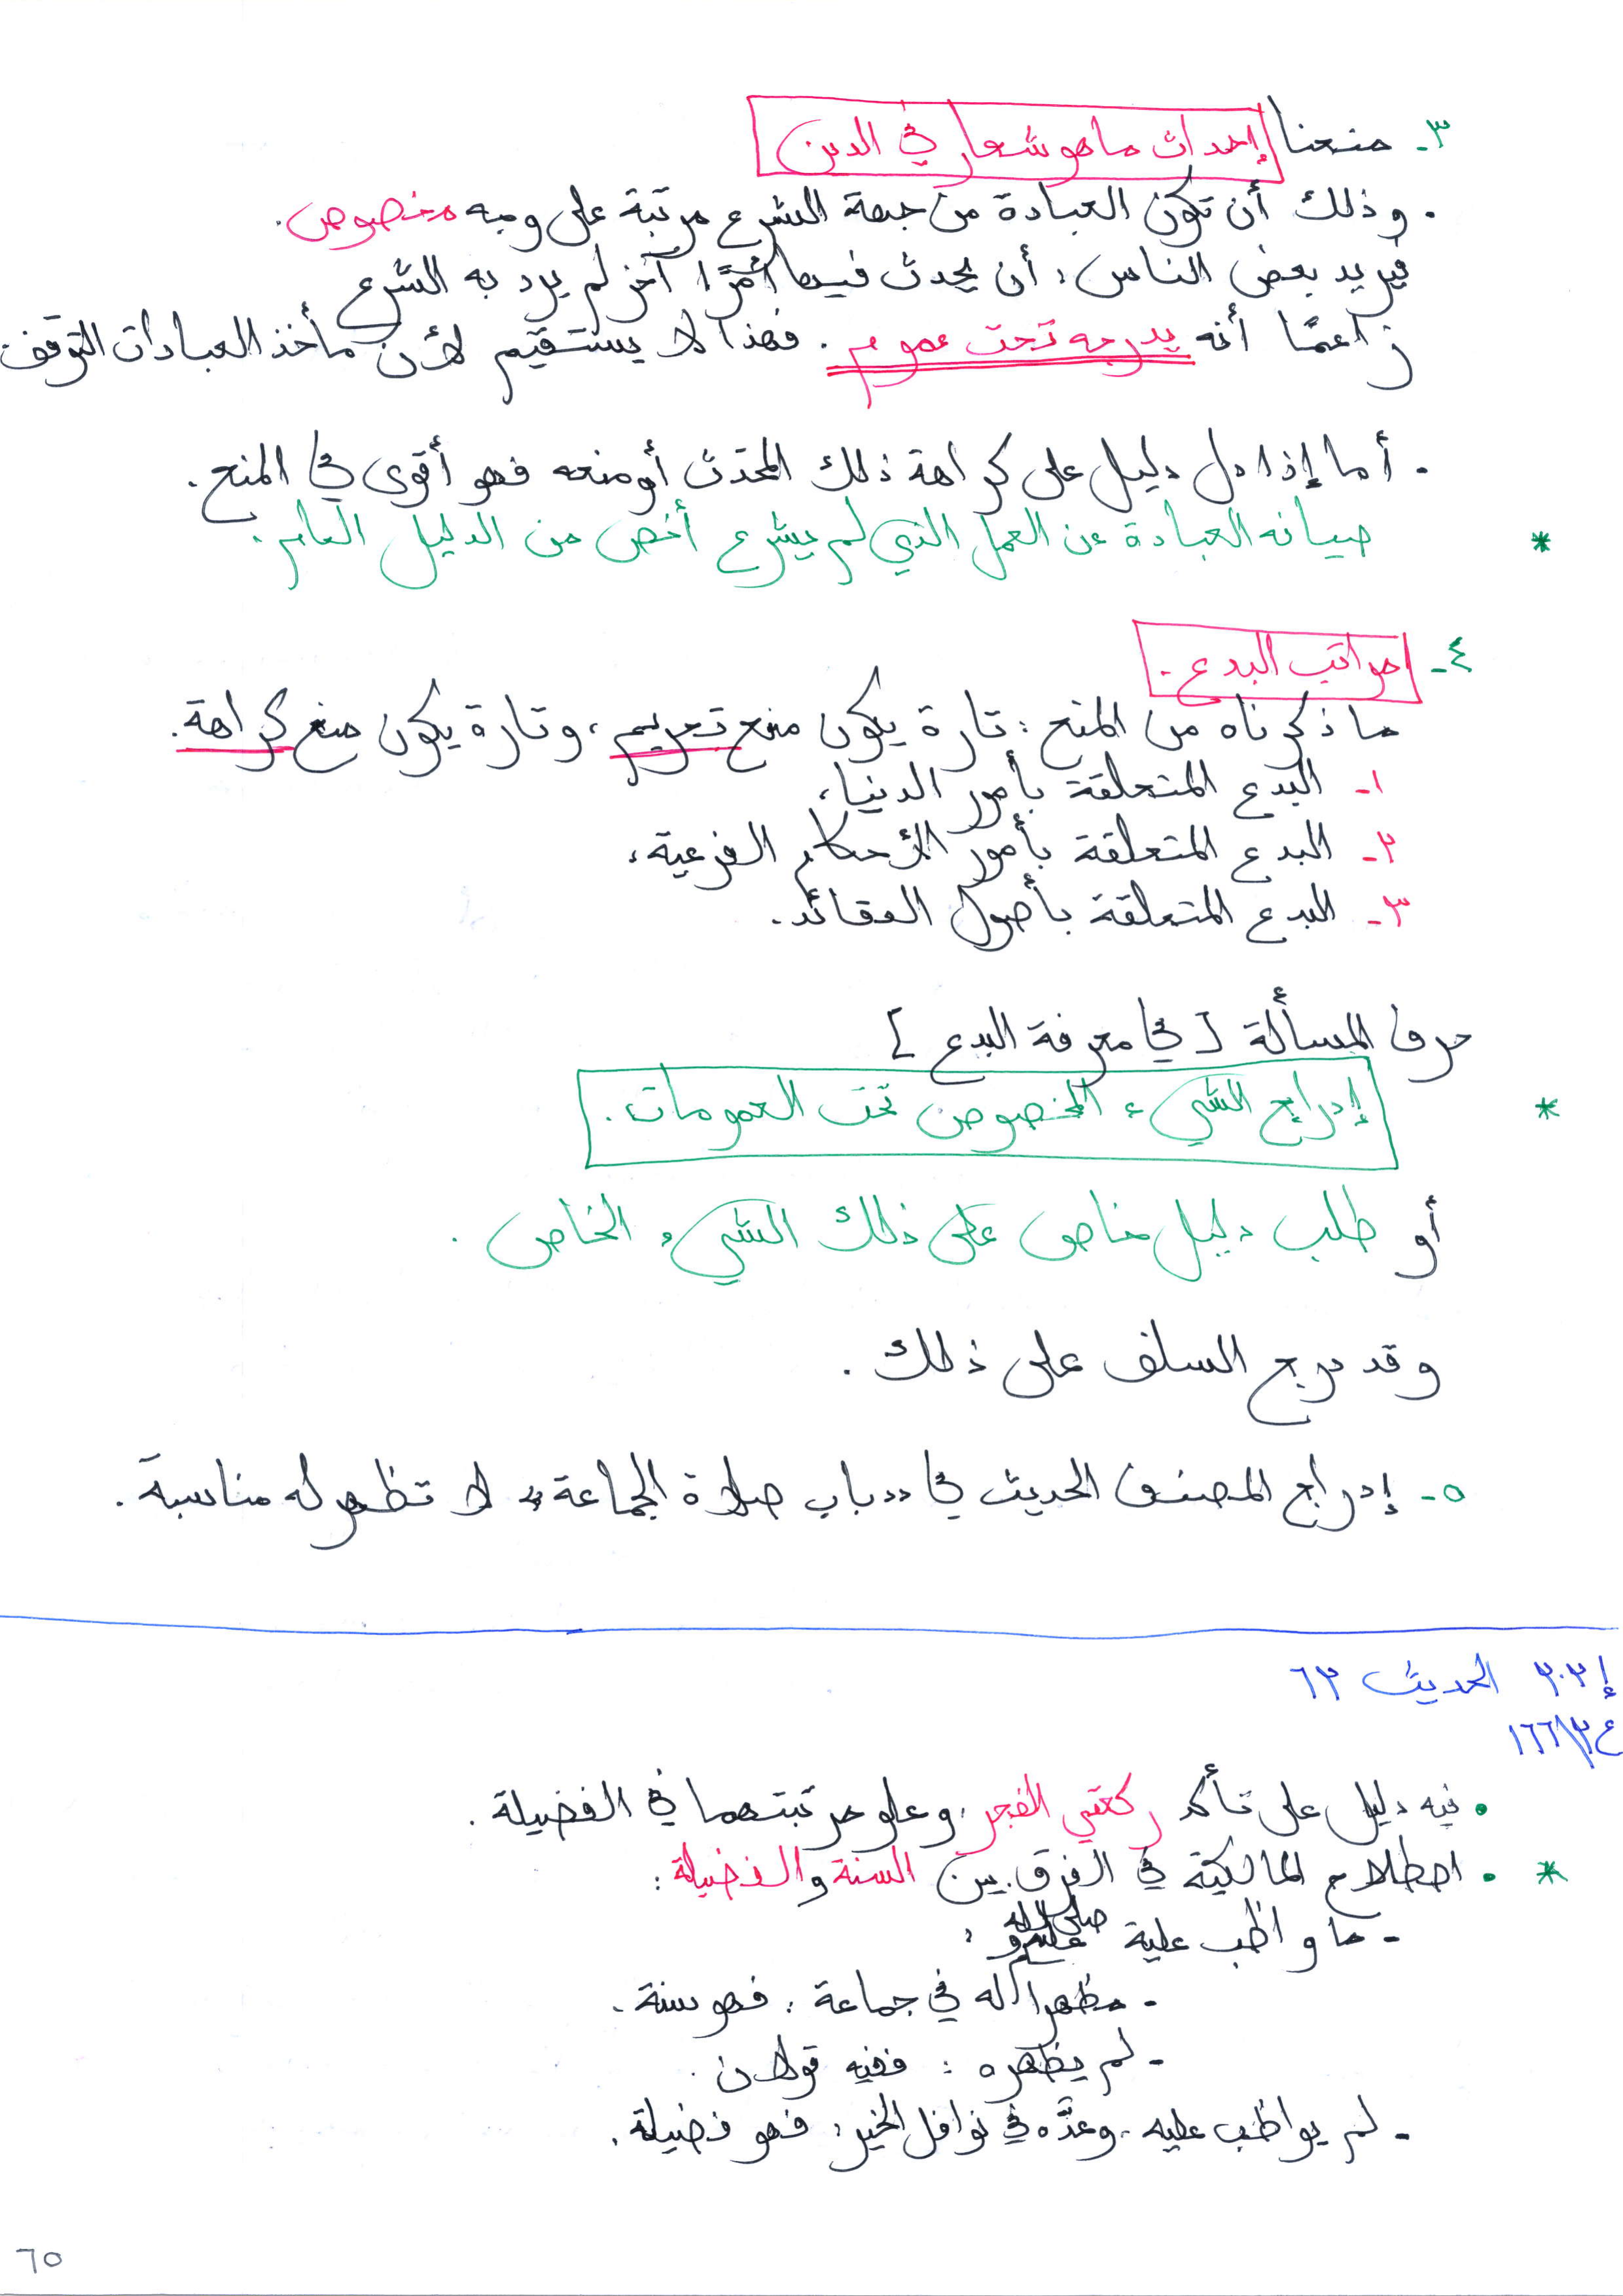 ٣- منعنا إحداث ما هو شعار في الدين
. وذلك أن تكون العبادة من جهة الشرع مرتبة على وجه مخصوص.
فيريد بعض الناس: أن يحدث فيها أمرًا آخر لم يرد به الشرع
زاعمًا أنه يدرجه تحت عموم. فهذا لا يستقيم لأن مأخذ العبادات التوقف
. أما إذا دل دليل على كراهة ذلك المحدث أو منعه فهو أقوى في المنع.
* صيانه العبادة عن العمل الذي لم يشرع أخص من الدليل العام.
٤- مراتب البدع.
ما ذكرناه من المنع: تارة يكون منع تحريم، وتارة يكون منع كراهة.
١- البدع المتعلقة بأمور الدنيا،
٢- البدع المتعلقة بأمور الأحكام الفرعية،
٣- البدع المتعلقة بأصول العقائد.
حرف المسألة [في معرفة البدع]
* إدراج الشيء المخصوص تحت العمومات.
أو طلب دليل خاص على ذلك الشيء الخاص.
وقد درج السلف على ذلك.
٥- إدراج المصنف الحديث في «باب صلاة الجماعة» لا تظهر له مناسبة.
إ ٢٠٢ الحديث ٦٢
ع ٢\١٦٦
. فيه دليل على تأكد ركعتي الفجر، وعلو مرتبتهما في الفضيلة.
* . اصطلاح المالكية في الفرق بين السنة والفضيلة:
- ما واظب علية صلى الله عليه وسلم:
- مظهرا له في جماعة: فهو سنة.
- لم يظهره: ففيه قولان.
- لم يواظب عليه، وعدَّه في نوافل الخير: فهو فضيلة.
٦٥